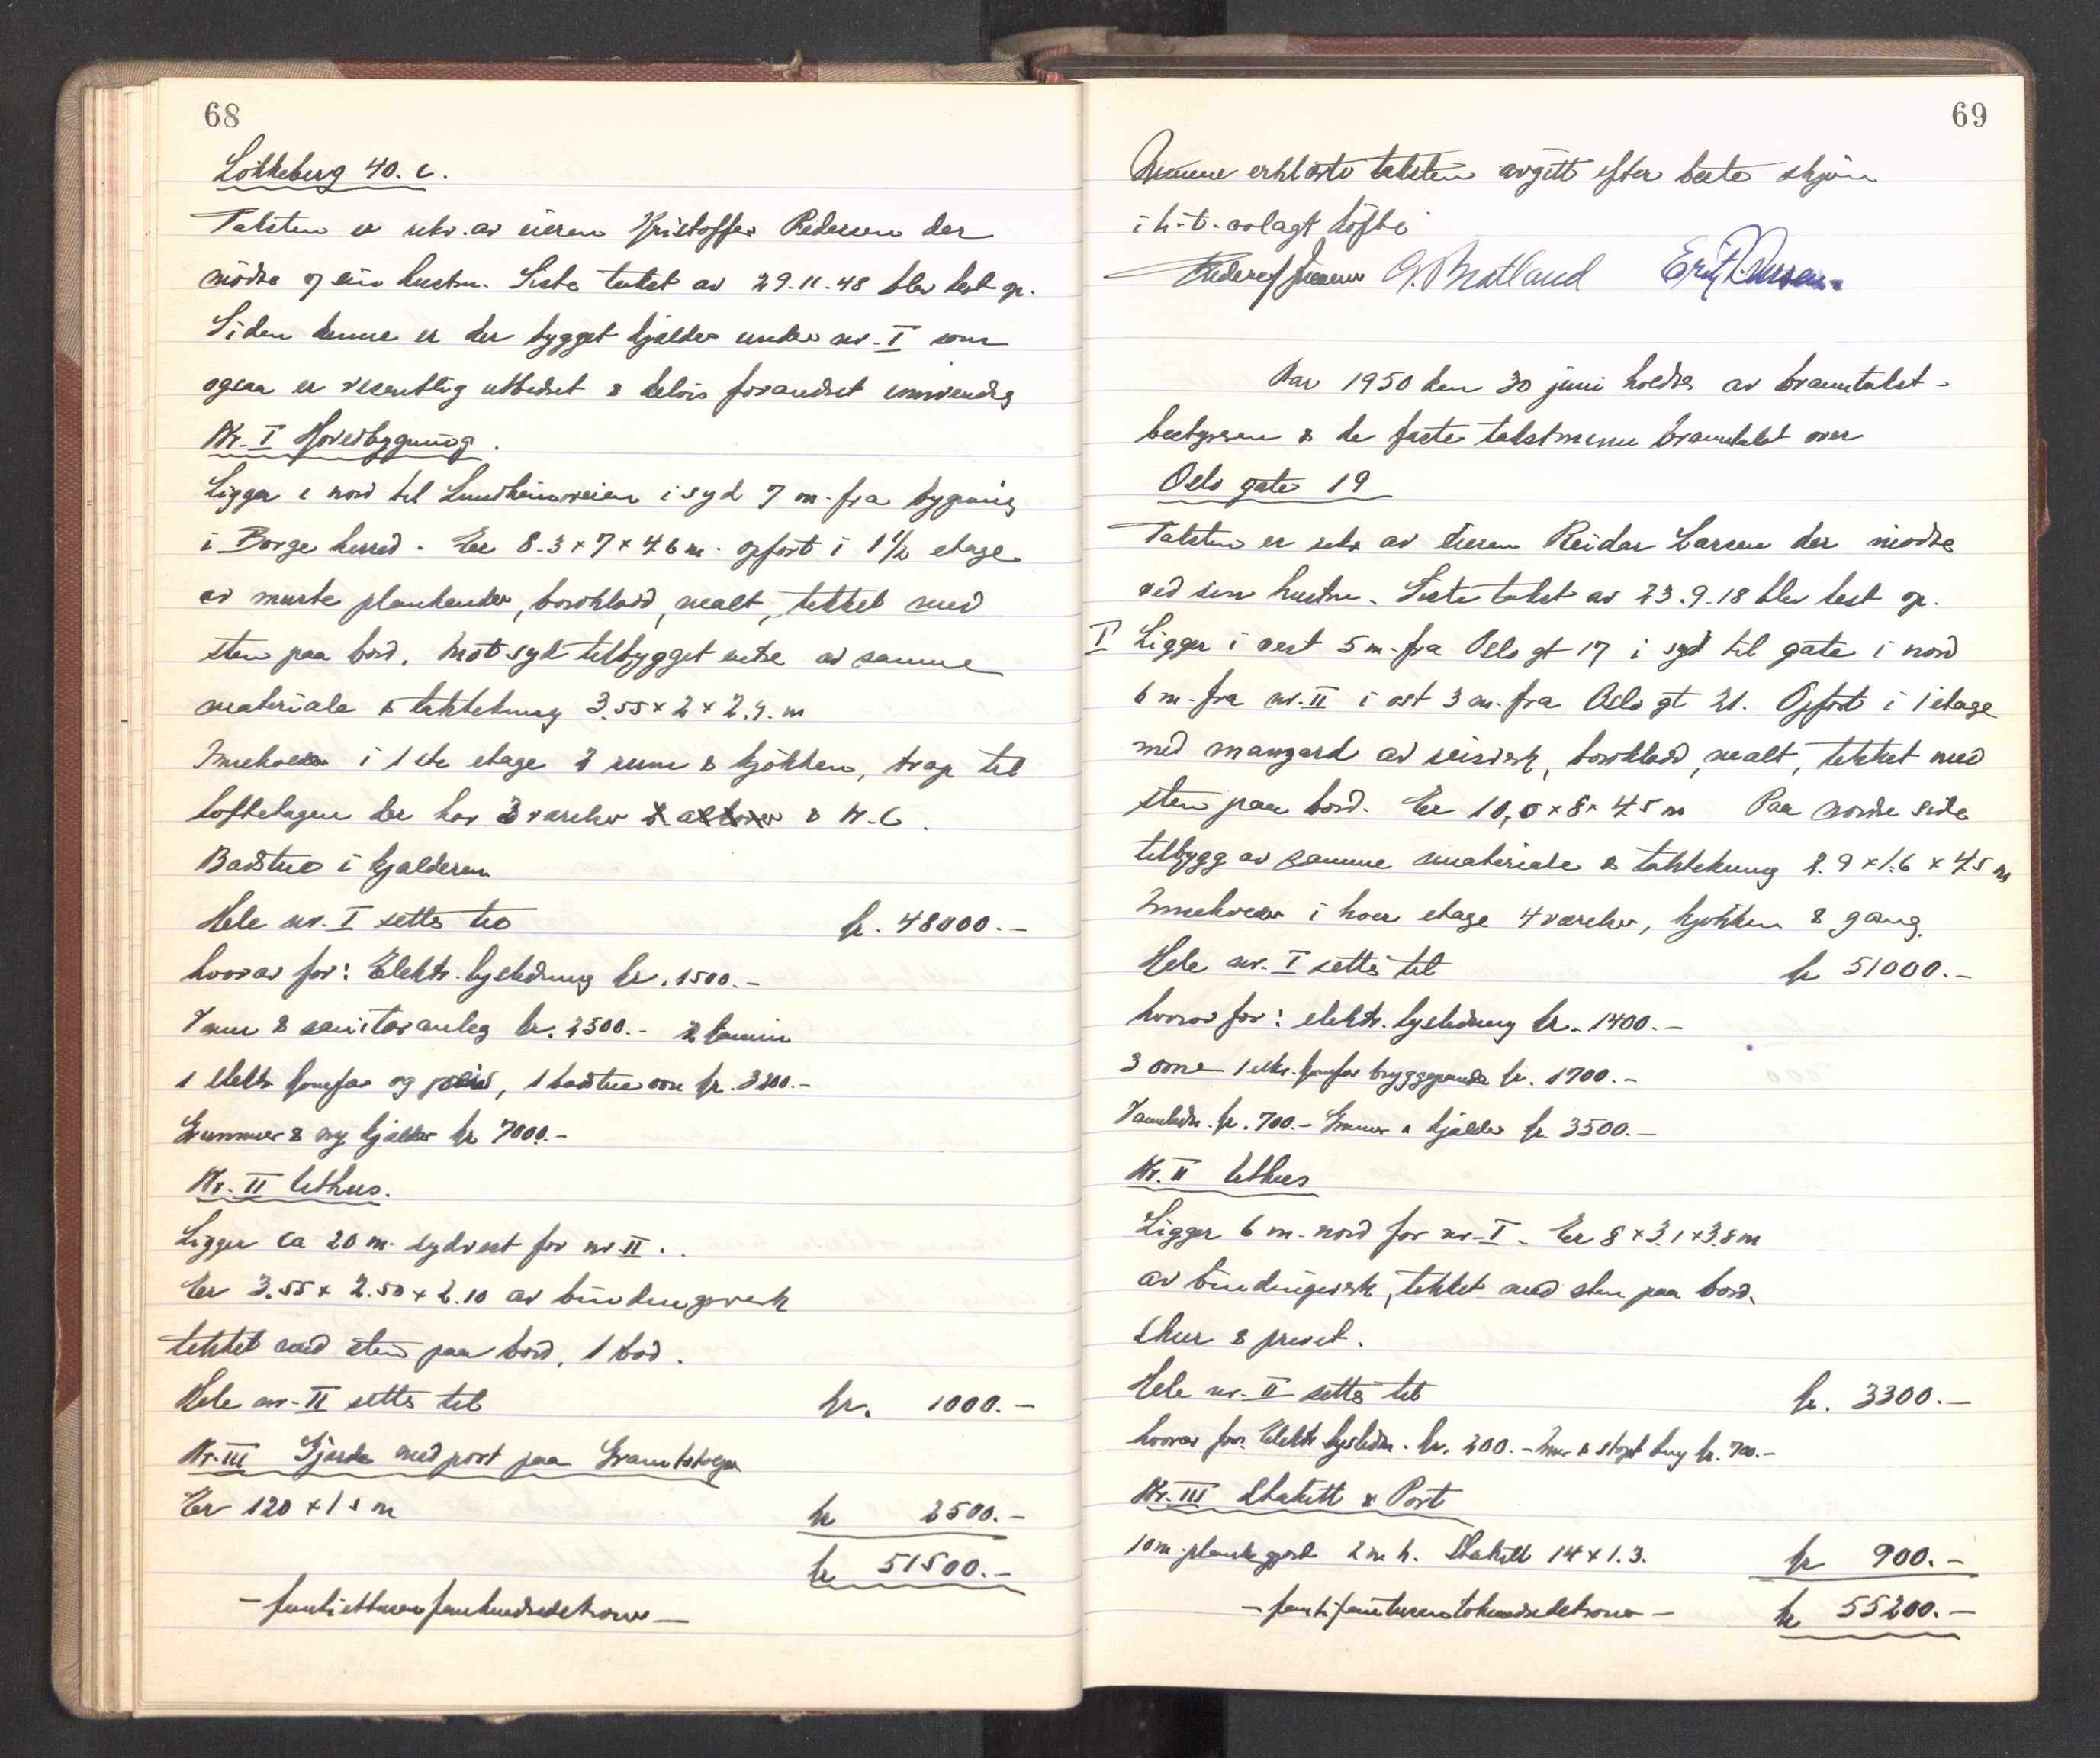 68
Lökkeberg 40. c.
Taksten er rekv. av eieren Kristoffer Pedersen der
mödte og hustru. Siste takst av 29.11.48 blev lest op.
Siden denne er der bygget kjelder under nr. I som
ogsaa er vesentlig utbedret & delvis forandret innvendig
Nr. I Hovedbygning.
Ligger i nord til Lundheimveien i syd 7 m. fra bygning
i Borge herred. Er 8.3 x 7 x 4.6 m. opfört i 1 1/2 etage
av plankender, bordklædd, malt, tekket med
sten paa bord. Mot syd tilbygget entre av samme
materiale & taktekning 3.55 x 2 x 2.9. m
Inneholder i 1ste etage 2 rum & kjökken, trap til
loftetagen der har 3 værelser & W.C.
Badstue i kjelderen
Hele nr. I settes til kr. 48000.-
hvorav for: Elektr. lysledning kr. 1500.-
Vann & sanitæranleg kr. 2500.- 2 kamin
1 elektr komfur og , 1 badstueovn kr. 3200.-
Grunnmur & ny kjelder kr 7000.-
Nr. II Uthus.
Ligger ca 20 m. sydvest for nr II.
Er 3.55 x 2.50 x 2.10 av bindingsverk
tekket med sten paa bord, 1 bod.
Hele nr. II settes til kr. 1000.-
Nr. III Gjerde med port paa Granitstolper
Er 120 x 1 s m kr 2500.-
kr 51500.-
- femtiettusenfemhundredekroner -
69
erklærte taksten avgitt efter beste skjön
i h.t. avlagt löfte
G. Bratland
Aar 1950 den 30 juni holdtes av branntakst-
bestyreren & de faste takstmenn branntakst over
Oslo gate 19
Taksten er rekv av eieren Reidar Larsen der mödte
ved sin hustru. Siste takst av 23.9.18 blev lest op.
I Ligger i vest 5 m. fra Oslo gt 17 i syd til gate i nord
6 m. fra nr. II i öst 3 m. fra Oslo gt 21. Opfört i 1 etage
med mansard av reisverk, bordklædd, malt, tekket med
sten paa bord. Er 10,0 x 8 x 4.5 m Paa nordre side
tilbygg av samme materiale & taktekning 2.9 x 1.6 x 4.5 m
Inneholder i hver etage 4 værelser, kjökken & gang.
Hele nr. I settes til kr 51000.-
hvorav for: elektr. lysledning kr. 1400.-
3 ovne 1 elktr. komfur bryggepande kr. 1700.-
Vannledn. kr. 700.- Grunnmur & kjelder kr. 3500.-
Nr. II Uthus
Ligger 6 m. nord for nr. I. Er 8 x 3.1 x 3.8 m
av bindingsverk, tekket med sten paa bord.
Skur & privet.
Hele nr. II settes til kr. 3300.-
hvorav for: Elektr lysledn. kr. 200.- Mur & stöpt kr. 700.-
Nr. III Stakitt & Port
10 m. plankegjerde 2 m h. Stakitt 14 x 1.3. kr 900.-
- femtifemtusentohundredekroner - kr 55200.-